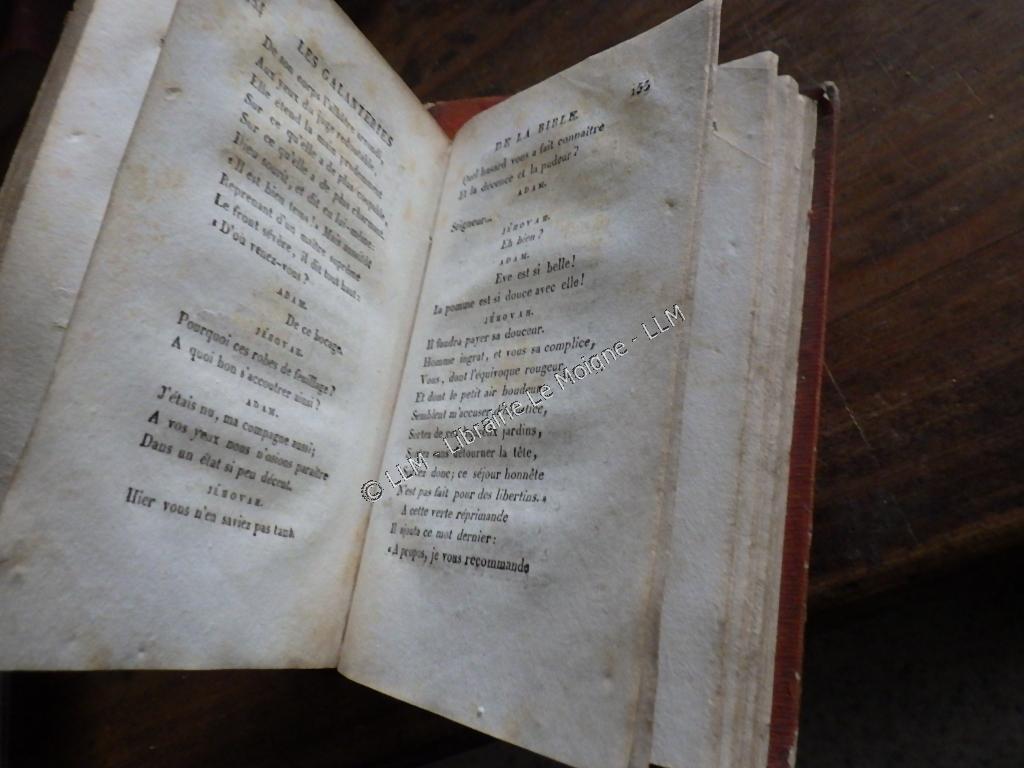 LES GALANTERIES
De son corps l'albâtre arrondi,
Aux yeux du juge redoutable,
Elle étend la main prudemment
Sur ce qu'elle a de plus coupable,
Sur ce qu'elle a de plus charmant.
Dieu sourit, et dit en lui-même:
« Il est bien tems! » Mais aussitôt
Reprenant d'un maître suprême
Le front sévère, il dit tout haut:
« D'où venez-vous?
ADAM.
De ce bocage.
JÉHOVAH.
Pourquoi ces robes de feuillage?
A quoi bon s'accoutrer ainsi?
ADAM.
J'étais nu, ma compagne aussi;
A vos yeux nous n'osions paraître
Dans un état si peu décent.
JÉHOVAH.
Hier vous n'en saviez pas tant.
DE LA BIBLE. 153
Quel hasard vous a fait connaître
Et la décence et la pudeur?
ADAM.
Seigneur...
JÉHOVAH.
Eh bien?
ADAM.
Eve est si belle!
La pomme est si douce avec elle!
JÉHOVAH.
Il faudra payer sa douceur.
Homme ingrat, et vous sa complice,
Vous, dont l'équivoque rougeur
Et dont le petit air boudeur
Semblent m'accuser
Sortez de jardins,
sans détourner la tête,
donc; ce séjour honnête
N'est pas fait pour des libertins. »
A cette verte réprimande
Il ajouta ce mot dernier:
« A propos, je vous recommande
© LLM - Librairie Le Moigne - LLM